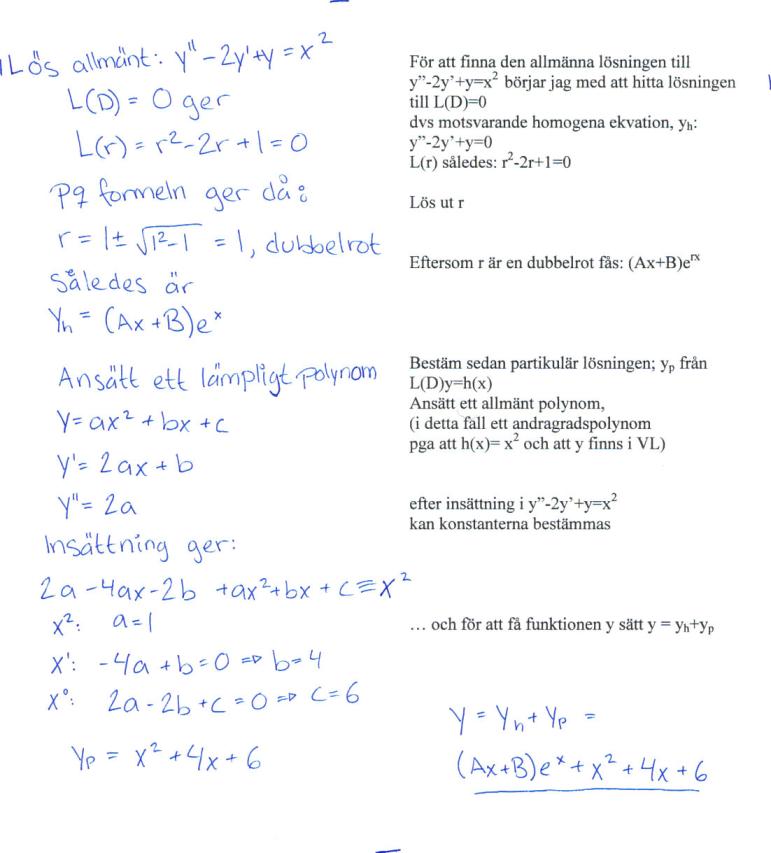 Lös allmänt: y'' - 2y' + y = x²
L(D) = 0 ger
L(r) = r² - 2r + 1 = 0
Pq formeln ger då:
r = 1 ± √1²-1 = 1, dubbelrot
Således är
Yh = (Ax + B)eˣ
Ansätt ett lämpligt polynom
Y = ax² + bx + c
Y' = 2ax + b
Y" = 2a
Insättning ger:
2a - 4ax - 2b + ax² + bx + c ≡ x²
x²: a = 1
x': -4a + b = 0 => b = 4
x⁰: 2a - 2b + c = 0 => c = 6
Yp = x² + 4x + 6
För att finna den allmänna lösningen till
y”-2y’+y=x² börjar jag med att hitta lösningen
till L(D)=0
dvs motsvarande homogena ekvation, yh:
y”-2y’+y=0
L(r) således: r²-2r+1=0
Lös ut r
Eftersom r är en dubbelrot fås: (Ax+B)eʳˣ
Bestäm sedan partikulär lösningen; yp från
L(D)y=h(x)
Ansätt ett allmänt polynom,
(i detta fall ett andragradspolynom
pga att h(x)= x² och att y finns i VL)
efter insättning i y”-2y’+y=x²
kan konstanterna bestämmas
… och för att få funktionen y sätt y = yh+yp
Y = Yh + Yp =
(Ax+B)eˣ + x² + 4x + 6